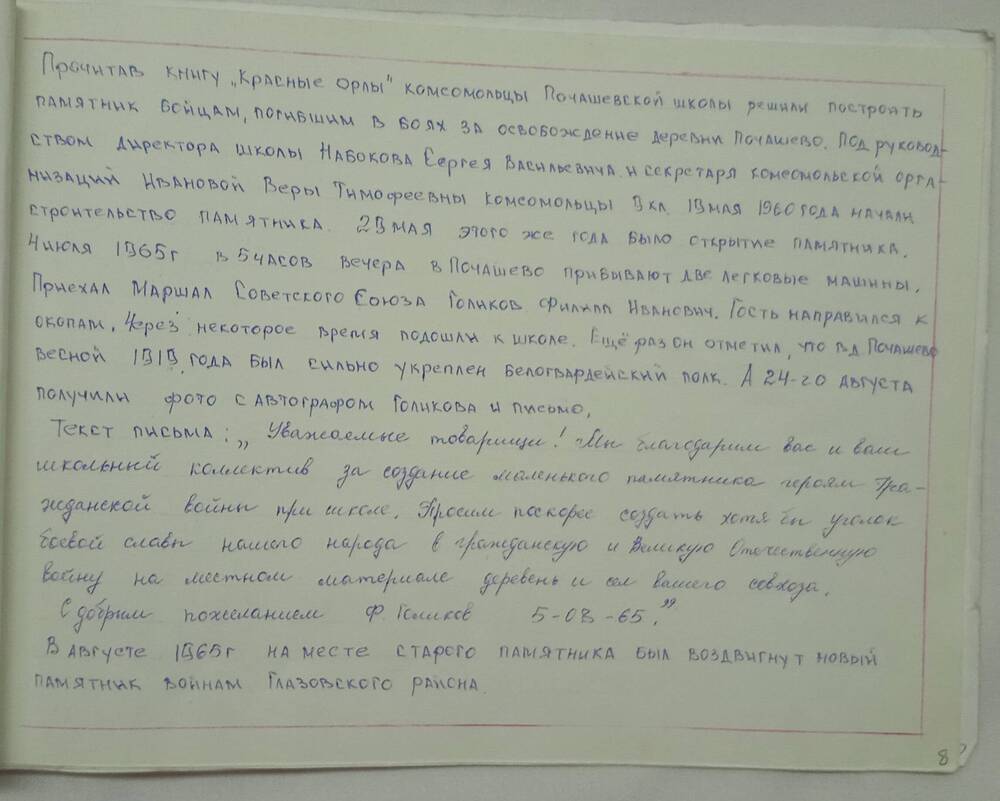 Прочитав книгу „Красные орлы" комсомольцы Почашевской школы решили построить
памятник бойцам, погибшим в боях за освобождение деревни Почашево. Под руковод-
ством директора школы Набокова Сергея Васильевича и секретаря комсомольской орга-
низаций Ивановой Веры Тимофеевны комсомольцы 9 кл. 19 мая 1960 года начали
строительство памятника. 29 мая этого же года было открытие памятника.
4 июля 1965 г в 5 часов вечера в Почашево прибывают две легковые машины.
Приехал Маршал Советского Союза Голиков Филипп Иванович. Гость направился к
окопам. Через некоторое время подошли к школе. Ещё раз он отметил, что в д Почашево
весной 1919 года был сильно укреплен белогвардейский полк. А 24-го августа
получили фото с автографом Голикова и письмо.
Текст письма: „Уважаемые товарищи! Мы благодарим вас и ваш
школьный коллектив за создание маленького памятника героям Гра-
жданской войны при школе. Просим поскорее создать хотя бы уголок
боевой славы нашего народа в гражданскую и Великую Отечественную
войну на местном материале деревень и сел вашего совхоза.
С добрым пожеланием Ф. Голиков 5-08-65."
В августе 1965 г на месте старого памятника был воздвигнут новый
памятник воинам Глазовского района.
8